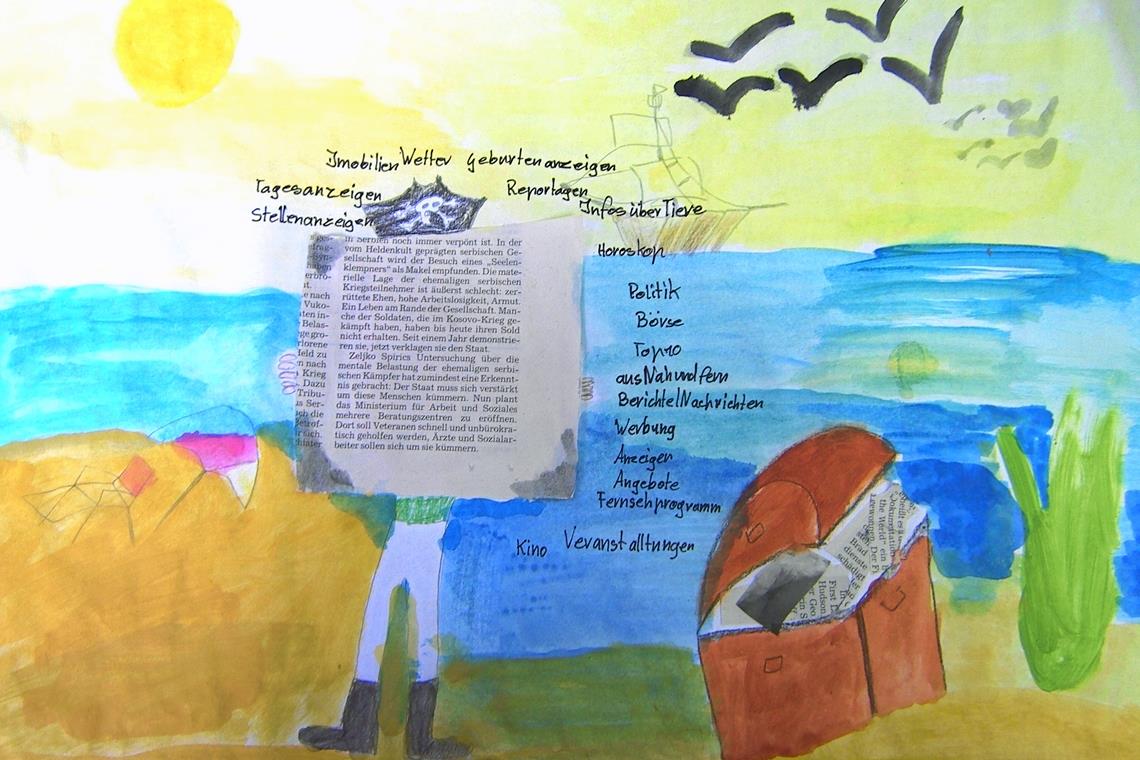 Imobilien Wetter Geburtenanzeigen
Tagesanzeigen
Reportagen
Stellenanzeigen
Infos über Tiere
Horoskop
Politik
Börse
aus Nah und fern
Berichte/Nachrichten
Werbung
Anzeigen
Angebote
Fernsehprogramm
Kino
Veranstalltungen
in Serbien noch immer verpönt ist. In der
vom Heldenkult geprägten serbischen Ge-
sellschaft wird der Besuch eines „Seelen-
klempners“ als Makel empfunden. Die mate-
rielle Lage der ehemaligen serbischen
Kriegsteilnehmer ist äußerst schlecht: zer-
rüttete Ehen, hohe Arbeitslosigkeit, Armut.
Ein Leben am Rande der Gesellschaft. Man-
che der Soldaten, die im Kosovo-Krieg ge-
kämpft haben, haben bis heute ihren Sold
nicht erhalten. Seit einem Jahr demonstrie-
ren sie, jetzt verklagen sie den Staat.
Zeljko Spirics Untersuchung über die
mentale Belastung der ehemaligen serbi-
schen Kämpfer hat zumindest eine Erkennt-
nis gebracht: Der Staat muss sich verstärkt
um diese Menschen kümmern. Nun plant
das Ministerium für Arbeit und Soziales
mehrere Beratungszentren zu eröffnen.
Dort soll Veteranen schnell und unbürokra-
tisch geholfen werden, Ärzte und Sozialar-
beiter sollen sich um sie kümmern.